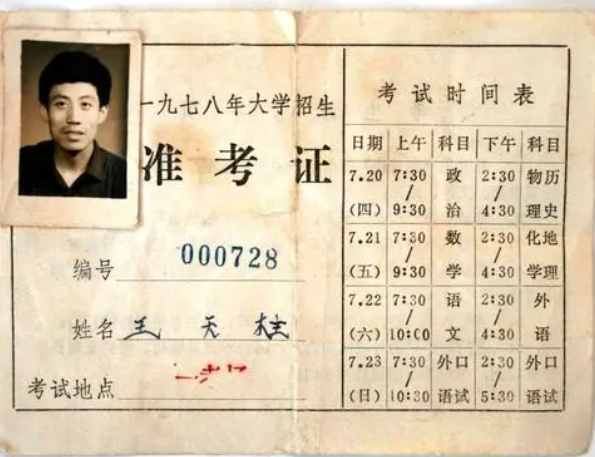 一九七八年大学招生
准考证
编号 000728
姓名 王天柱
考试地点
考试时间表
日期 上午 科目 下午 科目
7.20 (四) 7:30/9:30 政治 2:30/4:30 物理 历史
7.21 (五) 7:30/9:30 数学 2:30/4:30 化学 地理
7.22 (六) 7:30/10:00 语文 2:30/4:30 外语
7.23 (日) 7:30/10:30 外语口试 2:30/5:30 外语口试